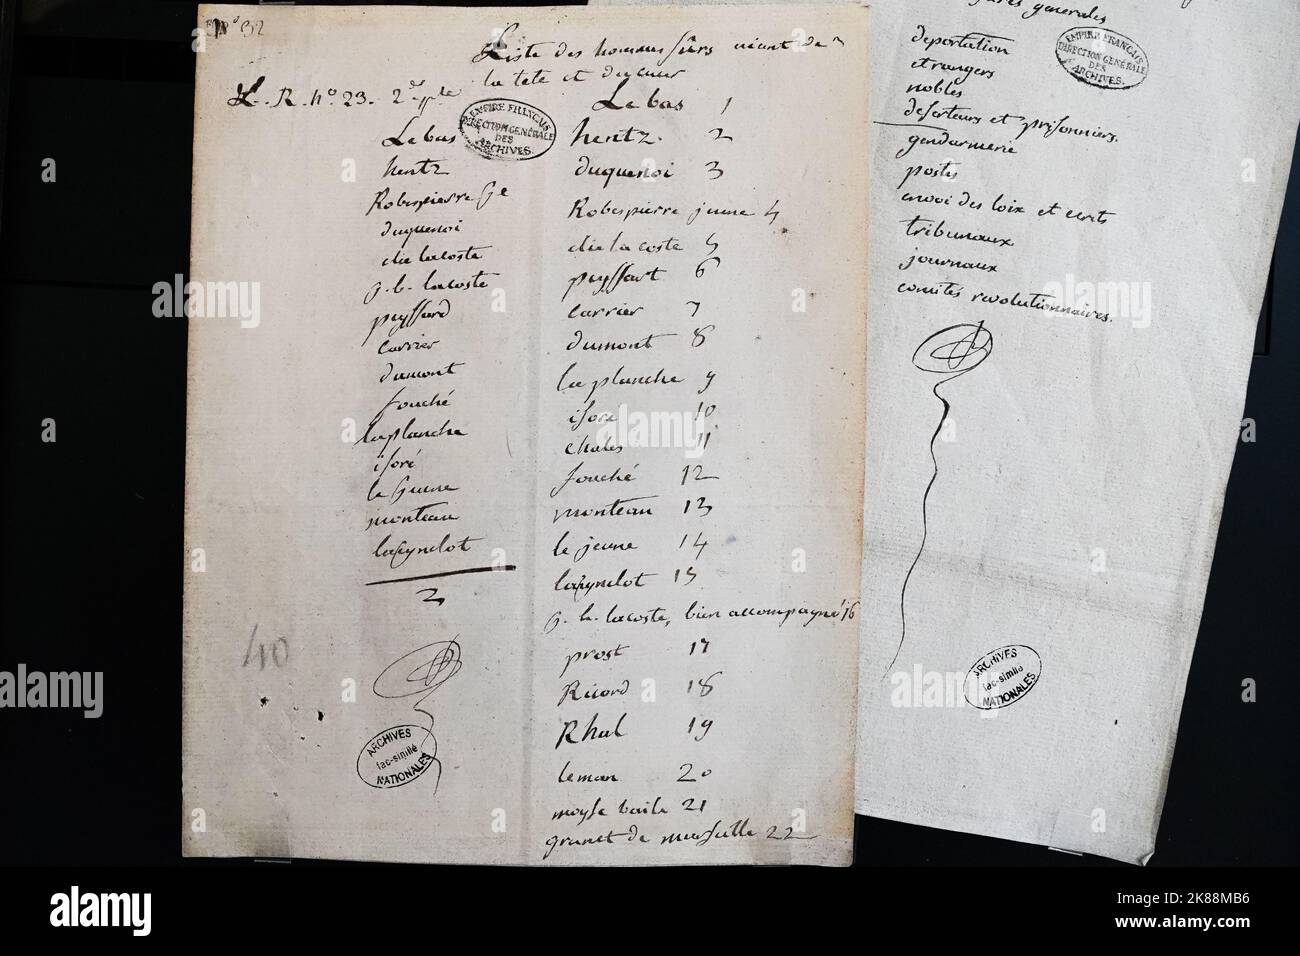 N° 32
Liste des hommes sûrs aiant de
la tete et du cœur
L. R. N° 23. 2de
EMPIRE FRANÇAIS
DIRECTION GÉNÉRALE
DES
ARCHIVES.
Le bas
hentz
Robespierre Je
duquenoi
elie lacoste
j. b. lacoste
peyssard
carrier
dumont
fouché
laplanche
isoré
le Jeune
monteau
laignelot
2
40
ARCHIVES
fac-similé
NATIONALES
Le bas 1
hentz. 2
duquenoi 3
Robespierre jeune 4
elie la coste 5
peyssart 6
carrier 7
dumont 8
la planche 9
isore 10
chales 11
fouché 12
monteau 13
le jeune 14
laignelot 15
j. b. lacoste, bien accompagné 16
prost 17
Ricord 18
Rhul 19
leman 20
moyse baile 21
granet de marseille 22
générales
EMPIRE FRANÇAIS
DIRECTION GÉNÉRALE
DES
ARCHIVES.
deportation
etrangers
nobles
deserteurs et prisonniers.
gendarmerie
postes
envoi des loix et ecrits
tribunaux
journaux
comités revolutionnaires.
ARCHIVES
fac-similé
NATIONALES
alamy
alamy
Image ID: 2K88MB6
www.alamy.com